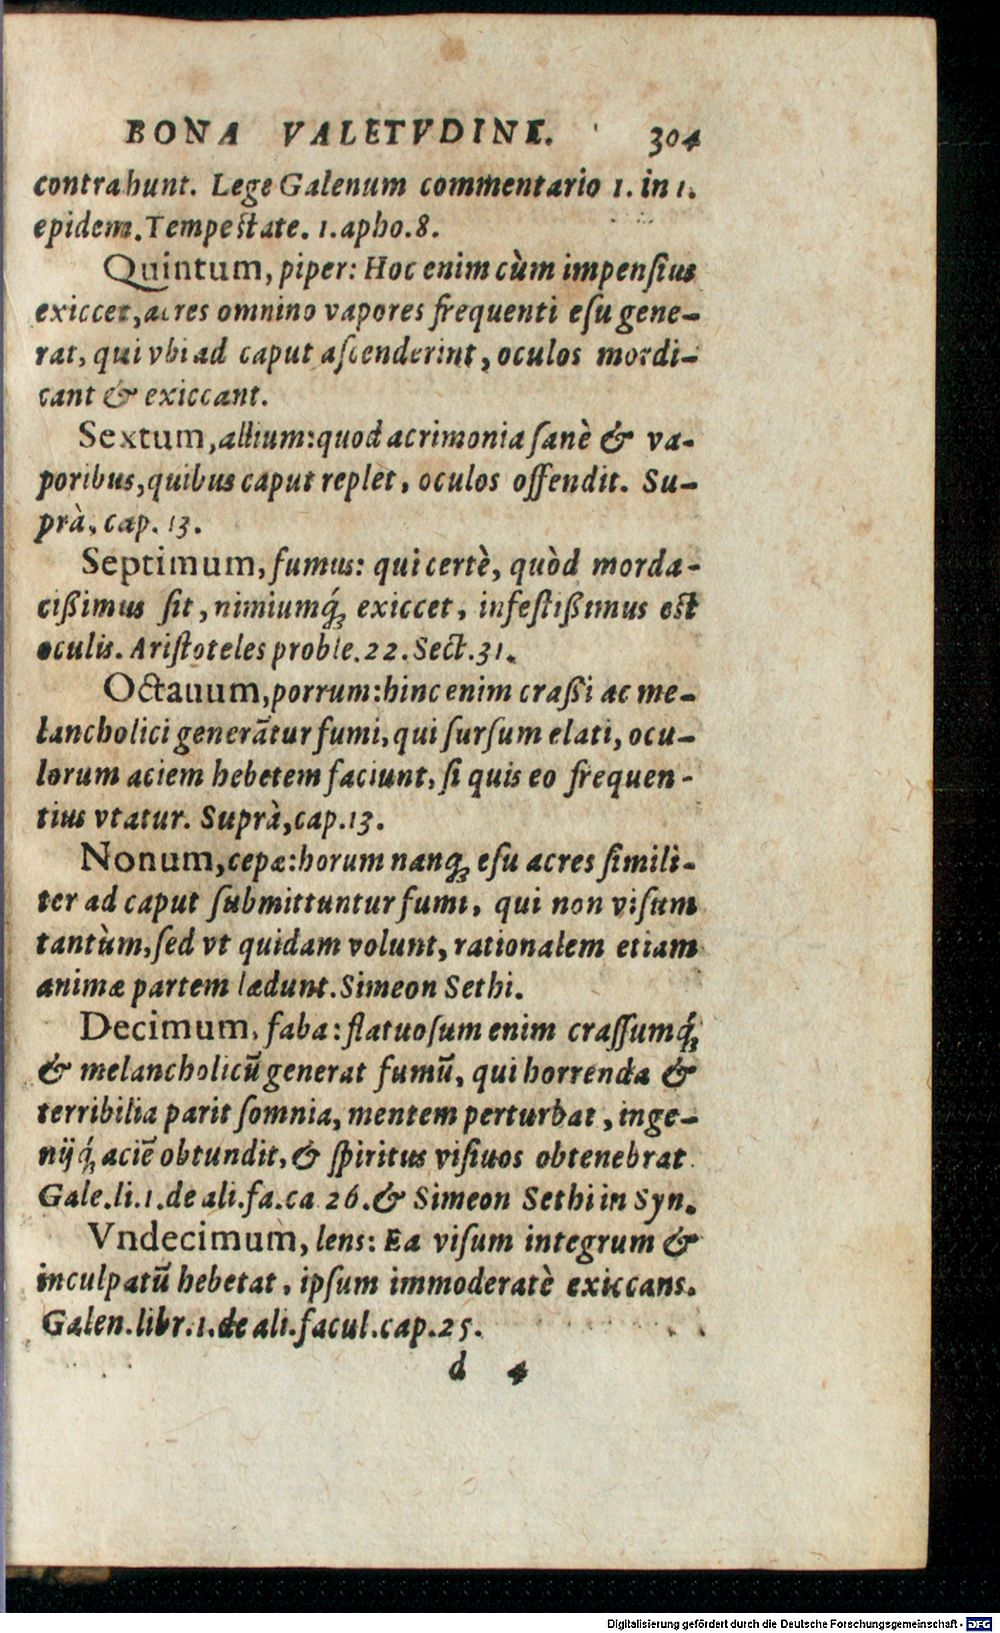 BONA VALETVDINE. 304
contrahunt. Lege Galenum commentario 1. in 1.
epidem. Tempestate. 1. apho. 8.
Quintum, piper: Hoc enim cùm impensius
exiccet, acres omnino vapores frequenti esu gene-
rat, qui vbi ad caput ascenderint, oculos mordi-
cant & exiccant.
Sextum, allium: quod acrimonia sanè & va-
poribus, quibus caput replet, oculos offendit. Su-
prà, cap. 13.
Septimum, fumus: qui certè, quòd morda-
cißimus sit, nimiumq́; exiccet, infestißimus est
oculis. Aristoteles proble. 22. Sect. 31.
Octauum, porrum: hinc enim craßi ac me-
lancholici generãtur fumi, qui sursum elati, ocu-
lorum aciem hebetem faciunt, si quis eo frequen-
tius vtatur. Suprà, cap. 13.
Nonum, cepæ: horum nanq; esu acres simili-
ter ad caput submittuntur fumi, qui non visum
tantùm, sed vt quidam volunt, rationalem etiam
animæ partem lædunt. Simeon Sethi.
Decimum, faba: flatuosum enim crassumq́;
& melancholicũ generat fumũ, qui horrenda &
terribilia parit somnia, mentem perturbat, inge-
nijq́; aciẽ obtundit, & spiritus visiuos obtenebrat.
Gale. li. 1. de ali. fa. ca 26. & Simeon Sethi in Syn.
Vndecimum, lens: Ea visum integrum &
inculpatũ hebetat, ipsum immoderatè exiccans.
Galen. libr. 1. de ali. facul. cap. 25.
d 4
Digitalisierung gefördert durch die Deutsche Forschungsgemeinschaft - DFG